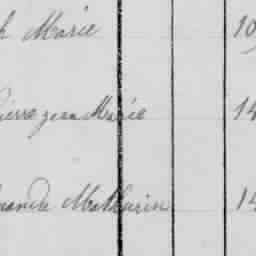 h Marie 10
Pierre jean Marie 14
Mathurin 14